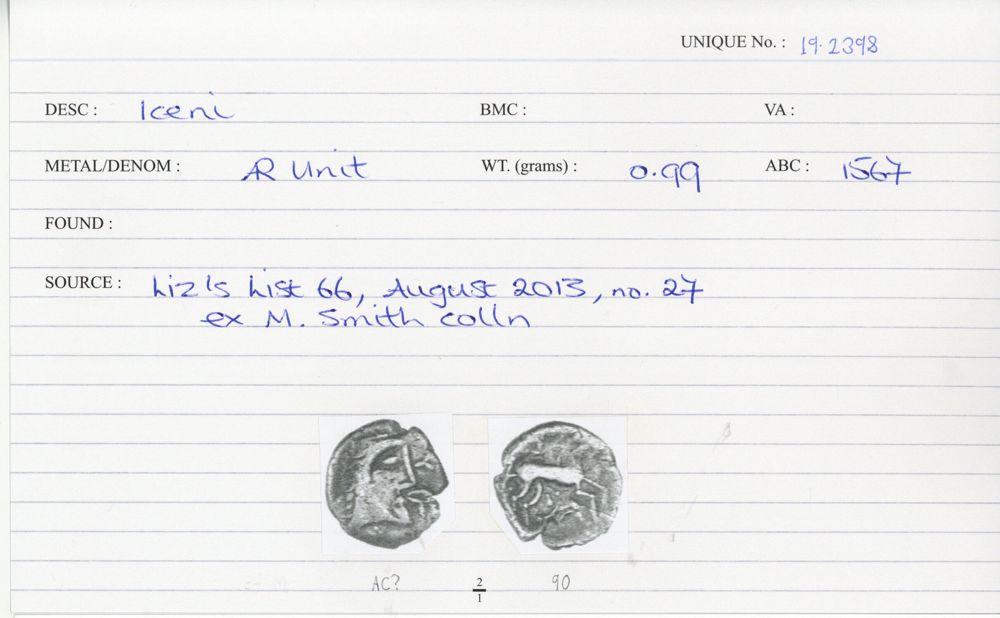 UNIQUE No. : 19.2398
DESC : Iceni BMC : VA :
METAL/DENOM : AR Unit WT. (grams) : 0.99 ABC : 1567
FOUND :
SOURCE : Liz's List 66, August 2013, no. 27
ex M. Smith colln
AC? 2/1 90